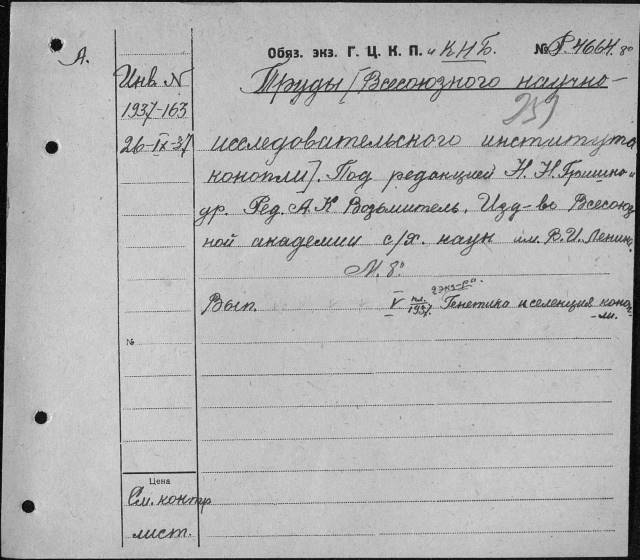 А.
Обяз. экз. Г. Ц. К. П. и КНБ. № Р.4664. 8º
Инв. N
1937-163
26-IX-37
Труды [Всесоюзного научно-
исследовательского института
конопли]. Под редакцией Н. Н. Гришко и
др. Ред. А. К Возьмитель. Изд-во Всесоюз
ной академии с/х. наук им. В. И. Ленин.
М. 8º
2 экз-ра.
Вып. V 1937. Генетика и селекция коноп-
ли.
№
Цена
См. контр
лист.